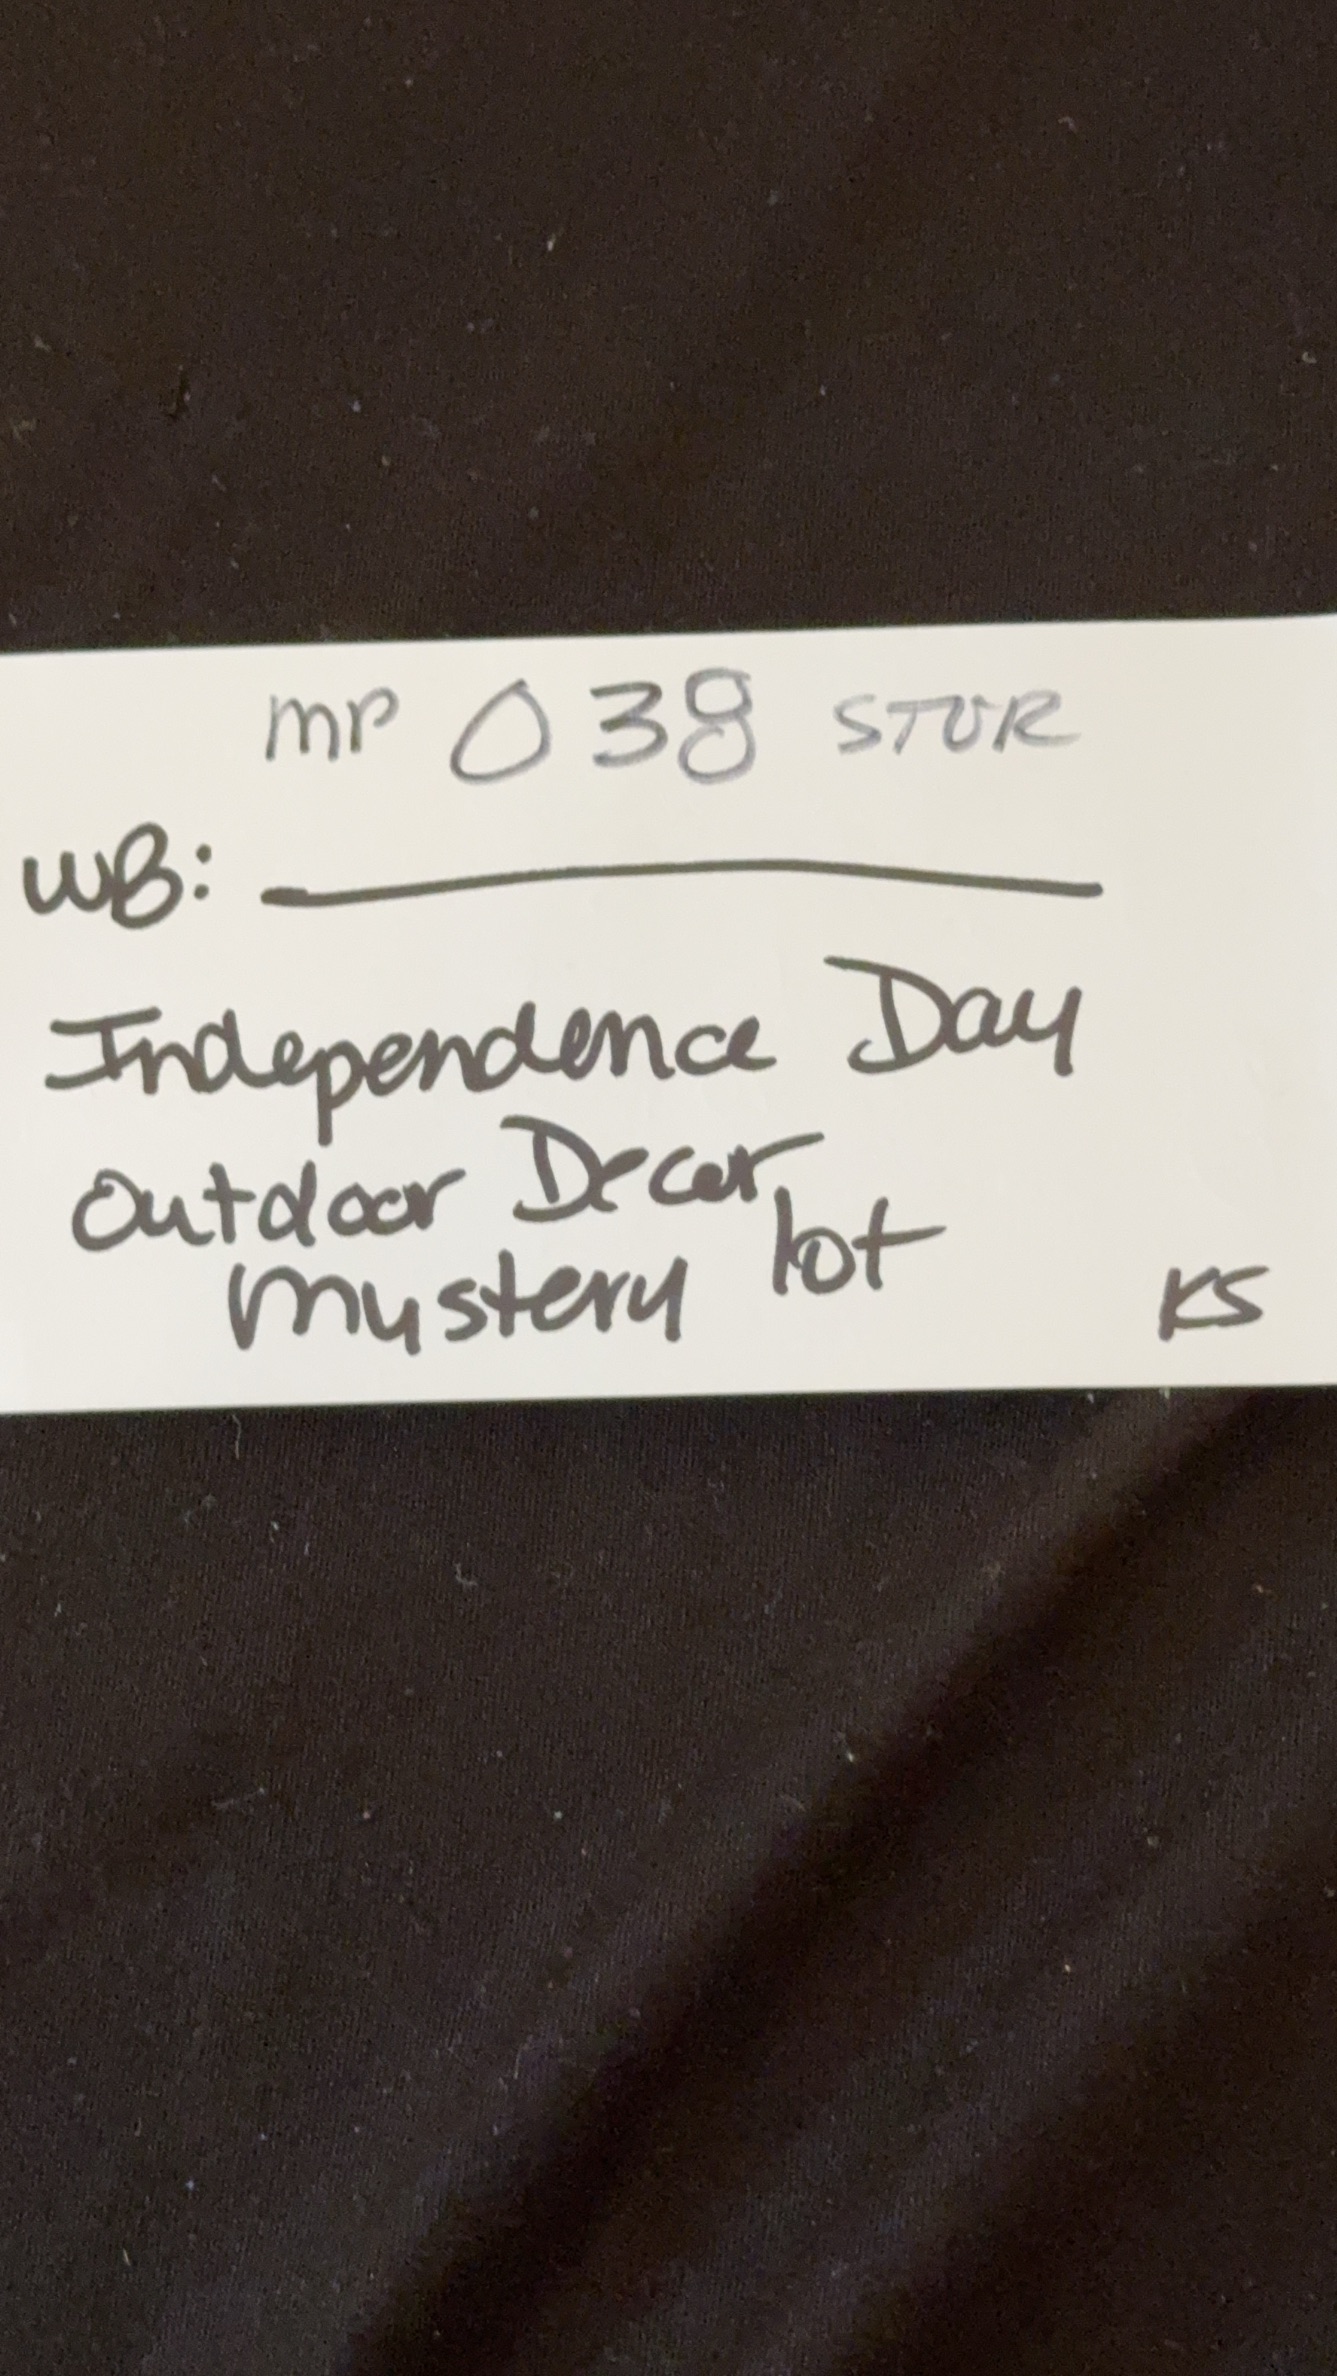 mp 038 STOR
WB:
Independence Day
Outdoor Decor
mystery lot
KS